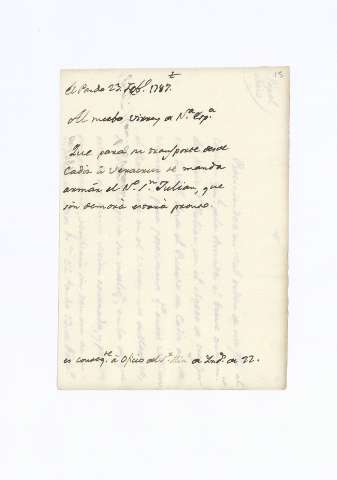 13
El Pardo 23. Feb.º 1787.
Al nuebo Virrey de N.ª Esp.ª
Que para su transporte desde
Cadiz á Veracruz se manda
armár el N.º S.n Julian, que
sin demora estará pronto.
es conseq.te á Oficio del S.r Min.º de Ind.s de 22.